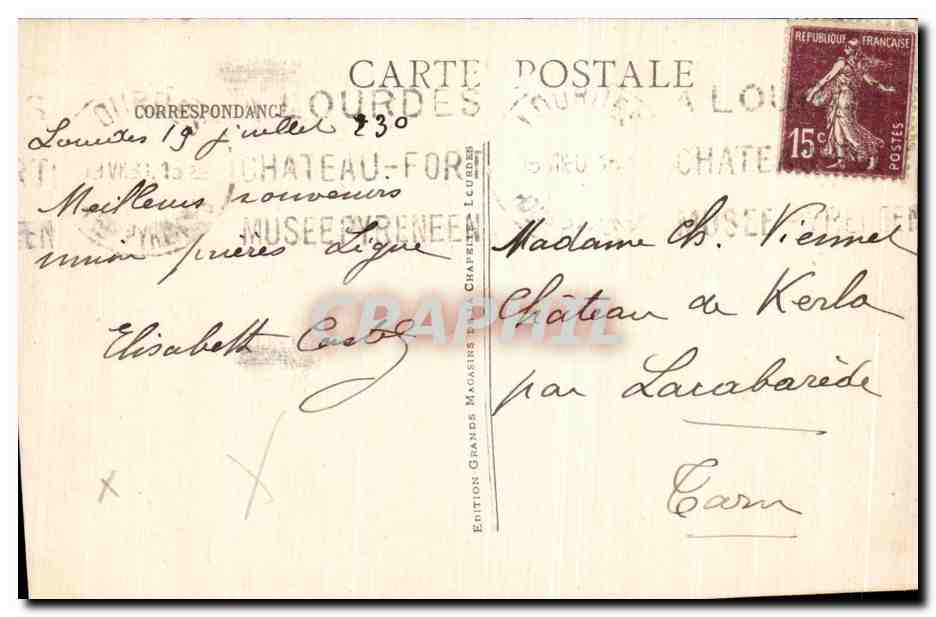 CARTE POSTALE
CORRESPONDANCE
REPUBLIQUE FRANÇAISE
15c
POSTES
LOURDES
CHATEAU-FORT
MUSEE PYRENEEN
A LOU
CHATE
MUSEE PYRENEEN
Lourdes 19 juillet
Meilleurs souvenirs
union prières Ligue
Elisabeth
Madame Ch. Viennet
Château de Kerlo
par Lacabarède
Tarn
EDITION GRANDS MAGASINS DE LA CHAPELLE LOURDES
CPAPHIL